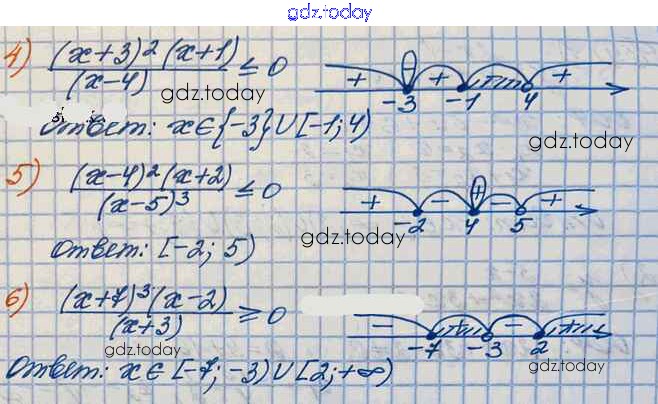 gdz.today
4) (x+3)²(x+1)/(x-4) ≤ 0 + - + + -3 -1 4
gdz.today
Ответ: x∈{-3}∪[-1;4)
gdz.today
5) (x-4)²(x+2)/(x-5)³ ≤ 0 + - + - + -2 4 5
gdz.today
Ответ: [-2; 5)
6) (x+7)³(x-2)/(x+3) ≥ 0 - + - + -7 -3 2
gdz.today
gdz.today
Ответ: x∈[-7; -3)∪[2;+∞)